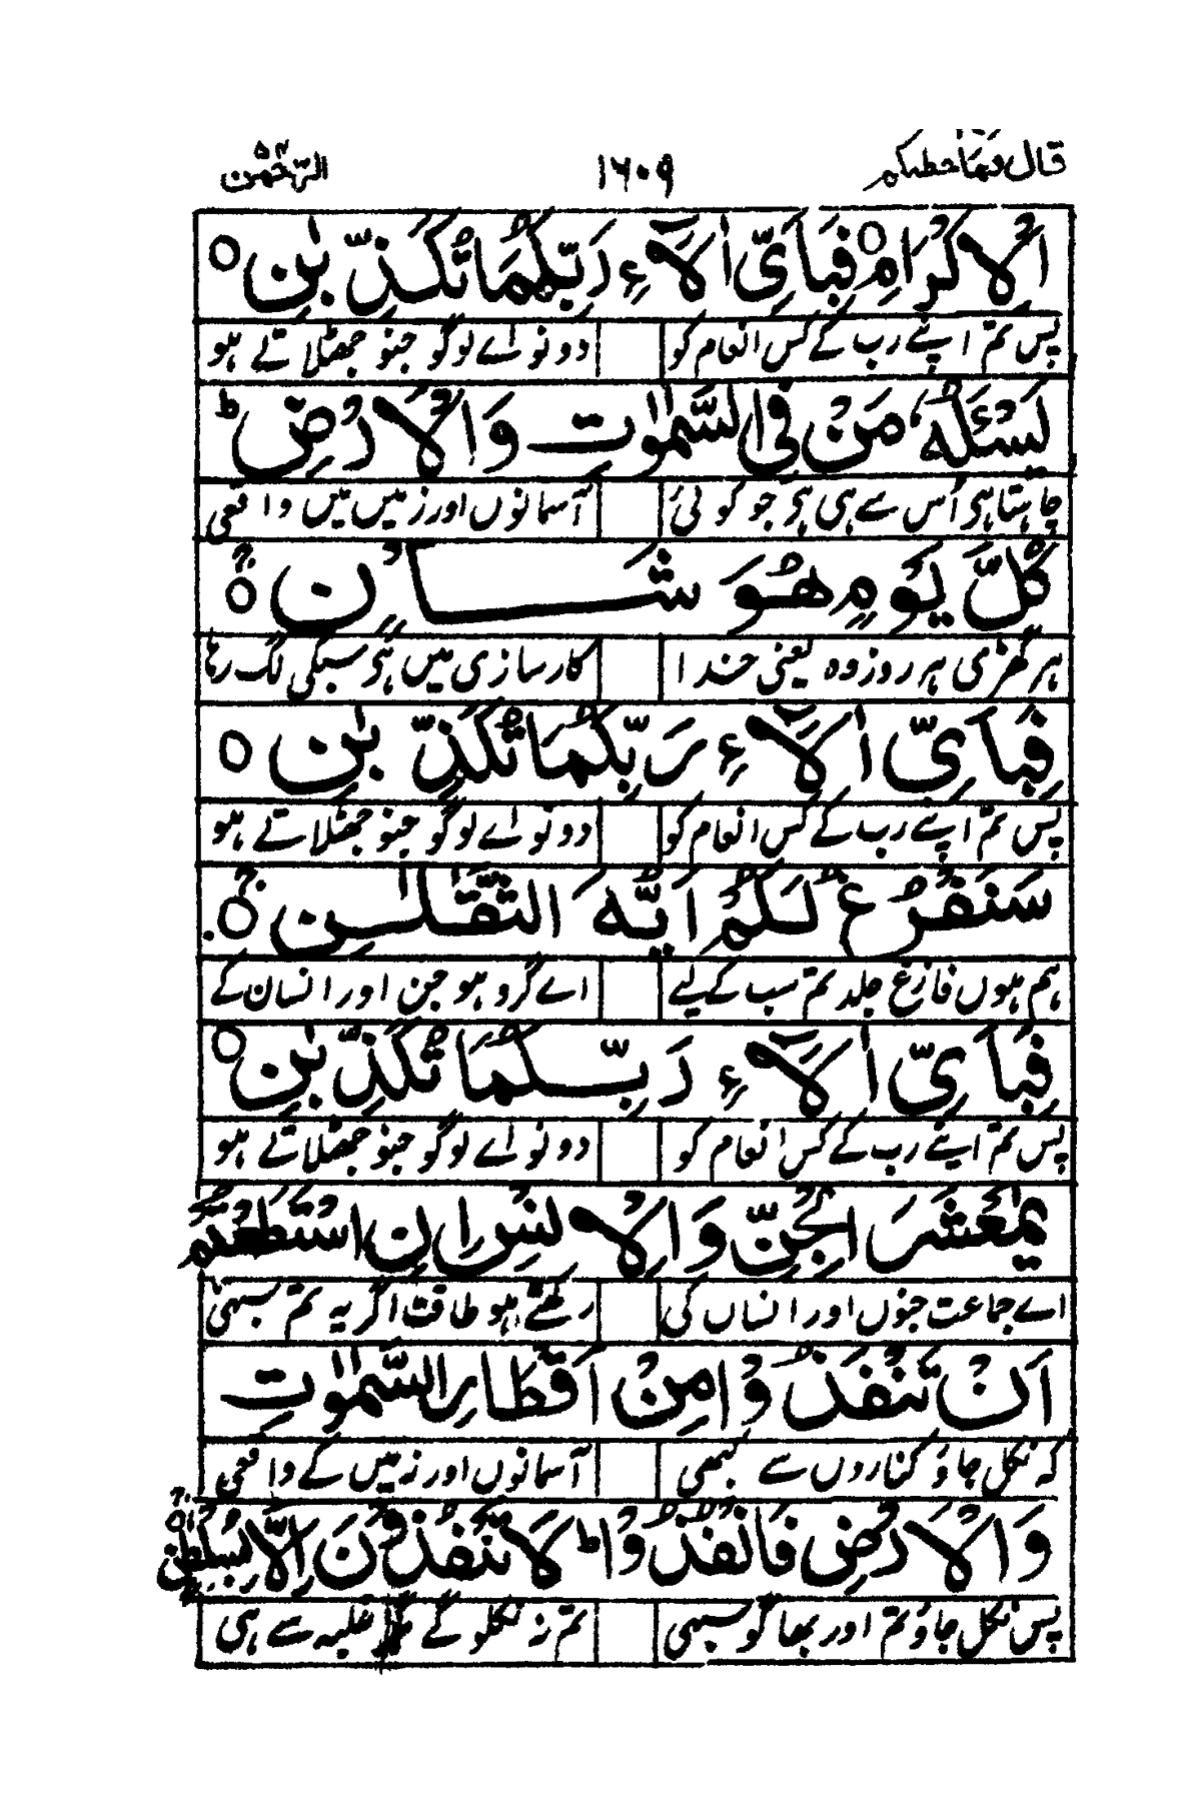 قال فما خطبكم ۱٦۰۹ الرّحمٰن ۵۵
الْاِكْرَامِ ○ فَبِاَيِّ اٰلَآءِ رَبِّكُمَا تُكَذِّبٰنِ ○
پس تم اپنے رب کے کس انعام کو دونو اے لوگو جنو جھٹلاتے ہو
يَسْئَلُهٗ مَنْ فِي السَّمٰوٰتِ وَالْاَرْضِ ط
چاہتا ہی اُس سے ہی ہی جو کوئی آسمانوں اور زمیں میں واقعی
كُلَّ يَوْمٍ هُوَ فِيْ شَاْنٍ ○
ہر گھڑی ہر روز وہ یعنی خدا کارسازی میں ہی سبکی لگ رہا
فَبِاَيِّ اٰلَآءِ رَبِّكُمَا تُكَذِّبٰنِ ○
پس تم اپنے رب کے کس انعام کو دونو اے لوگو جنو جھٹلاتے ہو
سَنَفْرُغُ لَكُمْ اَيُّهَ الثَّقَلٰنِ ○
ہم ہوں فارغ جلد تم سب کے لیے اے گرو ہو جن اور انسان کے
فَبِاَيِّ اٰلَآءِ رَبِّكُمَا تُكَذِّبٰنِ ○
پس تم اپنے رب کے کس انعام کو دونو اے لوگو جنو جھٹلاتے ہو
يٰمَعْشَرَ الْجِنِّ وَالْاِنْسِ اِنِ اسْتَطَعْتُمْ
اے جماعت جنوں اور انساں کی رکھتے ہو طاقت اگر یہ تم سبھی
اَنْ تَنْفُذُوْا مِنْ اَقْطَارِ السَّمٰوٰتِ
کہ نکل جاؤ کناروں سے کبھی آسمانوں اور زمیں کے واقعی
وَالْاَرْضِ فَانْفُذُوْا ط لَا تَنْفُذُوْنَ اِلَّا بِسُلْطٰنٍ ○
پس نکل جاؤ تم اور بھاگو سبھی تم نہ نکلو گے مگر غلبہ سے ہی